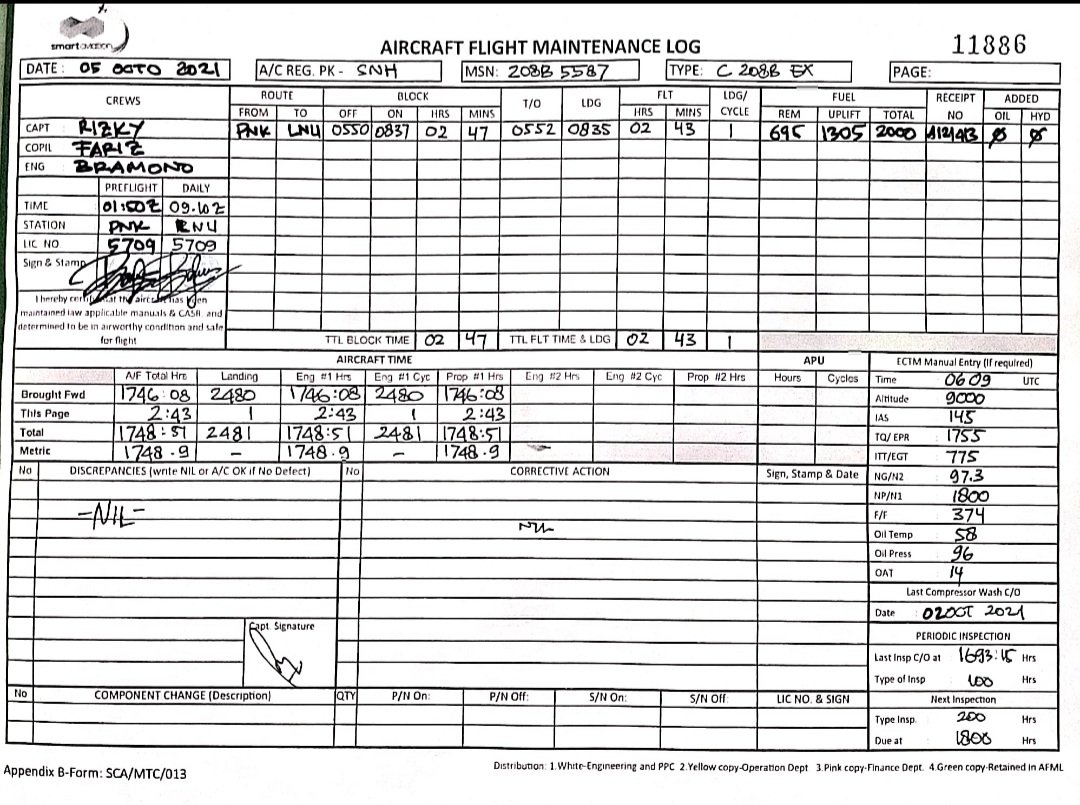 smartaviation
AIRCRAFT FLIGHT MAINTENANCE LOG
11886
DATE: 05 OCTO 2021 A/C REG. PK - SNH MSN: 208B 5587 TYPE: C 208B EX PAGE:
CREWS ROUTE BLOCK T/O LDG FLT LDG/CYCLE FUEL RECEIPT NO ADDED
FROM TO OFF ON HRS MINS HRS MINS REM UPLIFT TOTAL OIL HYD
CAPT RIZKY PNK LNU 0550 0837 02 47 0552 0835 02 43 1 695 1305 2000 Ø Ø
COPIL FARIZ
ENG BRAMONO
PREFLIGHT DAILY
TIME 01:50Z 09.10Z
STATION PNK
LIC NO. 5709 5709
Sign & Stamp
I hereby certify that the aircraft has been
maintained iaw applicable manuals & CASR, and
determined to be in airworthy condition and safe
for flight
TTL BLOCK TIME 02 47 TTL FLT TIME & LDG 02 43 1
AIRCRAFT TIME APU ECTM Manual Entry (If required)
A/F Total Hrs Landing Eng #1 Hrs Eng #1 Cyc Prop #1 Hrs Eng #2 Hrs Eng #2 Cyc Prop #2 Hrs Hours Cycles Time 0609 UTC
Brought Fwd 1746:08 2480 1746:08 2480 1746:08 Altitude 9000
This Page 2:43 1 2:43 1 2:43 IAS 145
Total 1748:51 2481 1748:51 2481 1748:51 TQ/ EPR 1755
Metric 1748.9 - 1748.9 - 1748.9 ITT/EGT 775
No DISCREPANCIES (write NIL or A/C OK if No Defect) No CORRECTIVE ACTION Sign, Stamp & Date NG/N2 97.3
NP/N1 1800
-NIL- NIL F/F 374
Oil Temp 58
Oil Press 96
OAT 14
Last Compressor Wash C/O
Date : 02 OCT 2021
Capt. Signature
PERIODIC INSPECTION
Last Insp C/O at 1693:15 Hrs
Type of Insp 100 Hrs
No COMPONENT CHANGE (Description) QTY P/N On: P/N Off: S/N On: S/N Off: LIC NO. & SIGN Next Inspection
Type Insp. 200 Hrs
Due at 1800 Hrs
Appendix B-Form: SCA/MTC/013
Distribution: 1.White-Engineering and PPC 2.Yellow copy-Operation Dept 3.Pink copy-Finance Dept. 4.Green copy-Retained in AFML